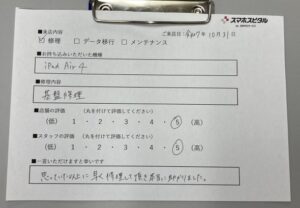 スマホスピタル
■来店内容
ご来店日：令和7年10月31日
☑修理 □データ移行 □メンテナンス
■お持ち込みいただいた機種
iPad Air 4
■修理内容
基盤修理
■店舗の評価 (丸を付けて評価してください)
(低) 1 ・ 2 ・ 3 ・ 4 ・ 5 (高)
■スタッフの評価 (丸を付けて評価してください)
(低) 1 ・ 2 ・ 3 ・ 4 ・ 5 (高)
■一言いただけますと幸いです
思っていた以上に早く修理して頂き本当に助かりました。